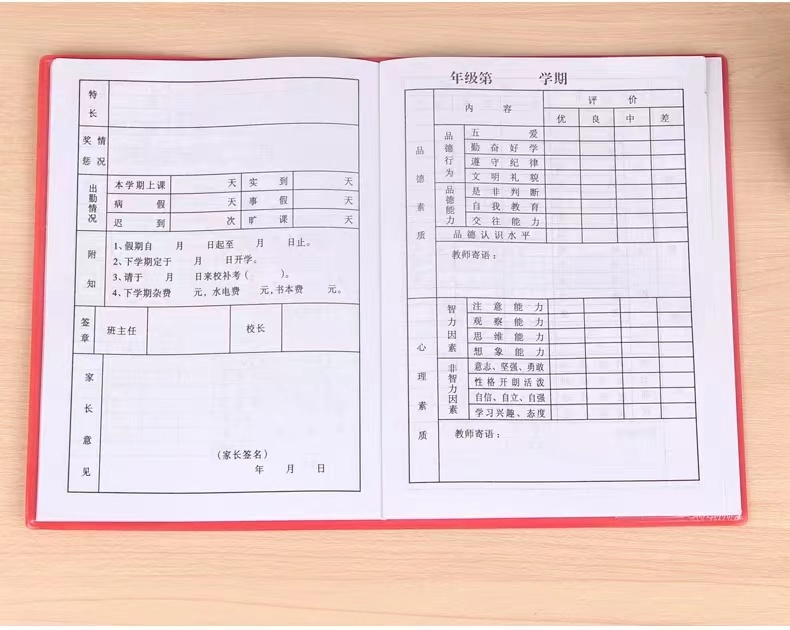 特长
奖惩 情况
出勤情况
本学期上课 天 实到 天
病假 天 事假 天
迟到 次 旷课 天
附知
1、假期自 月 日起至 月 日止。
2、下学期定于 月 日开学。
3、请于 月 日来校补考（ ）。
4、下学期杂费 元，水电费 元，书本费 元。
签章 班主任 校长
家长意见
（家长签名）
年 月 日
年级第 学期
内容 评价
优 良 中 差
品德素质
品德行为
五爱
勤奋好学
遵守纪律
文明礼貌
品德能力
是非判断
自我教育
交往能力
品德认识水平
教师寄语：
心理素质
智力因素
注意能力
观察能力
思维能力
想象能力
非智力因素
意志、坚强、勇敢
性格开朗活泼
自信、自立、自强
学习兴趣、态度
教师寄语：